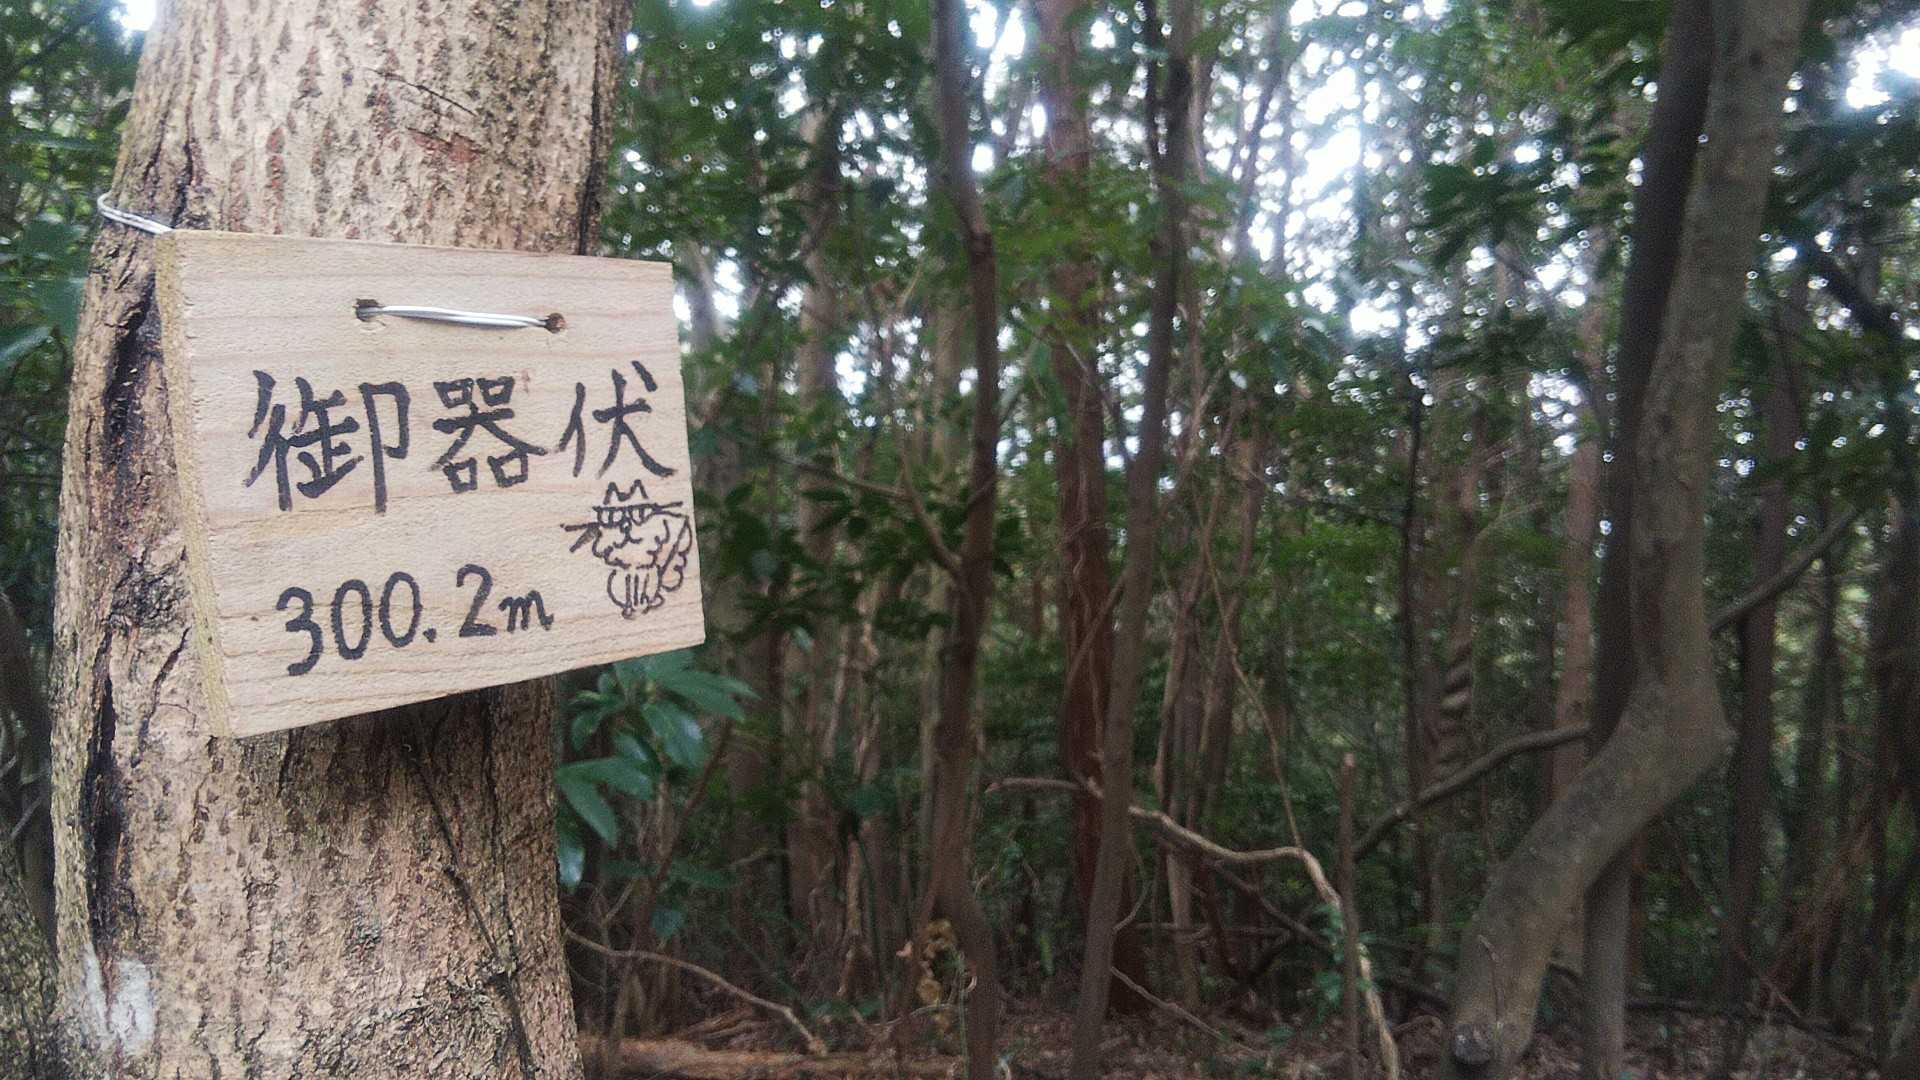 御器伏
300.2m